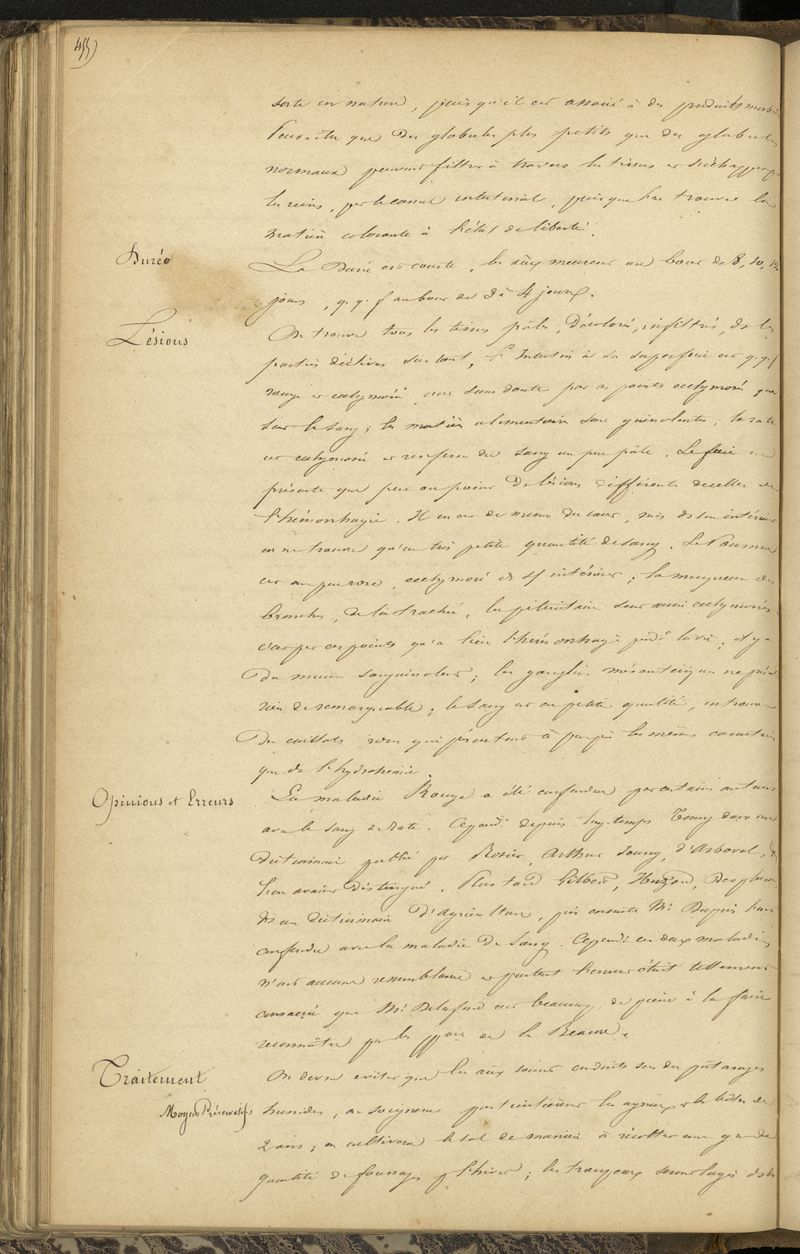 455)
sorte en nature, puisqu'il est associé à des produits morbi
Peut-être que des globules plus petits que des globules
normaux peuvent filtrer à travers les tissus et s'échapper
les reins, par le canal intestinal, puisque l'on trouve la
matière colorante à l'état de liberté.
Durée
La Durée est courte, les a͠ux meurent au bout de 8, 10, 12
jours, q.q.f au bout de 3 à 4 jours.
Lésions
On trouve tous les tissus pâles, décolorés, infiltrés, ds les
parties déclives surtout, l'Intestin à sa superficie est q.q.f
rouge et ecchymosé, c'est sans doute par ces points ecchymosés que
sort le sang; les matières alimentaires sont; la rate
est ecchymosée et renferme du sang un peu pâle. Le foie ne
présente que peu ou point de lésions différentes de celles de
l'hémorrhagie. Il en est de même du cœur, mais ds son intérieur
on ne trouve qu'une très petite quantité de sang. Le Poumon
est un peu rose, ecchymosé ds s/ intérieur; la muqueuse des
bronches, de la trachée, la pituitaire sont aussi ecchymosées
c'est par ces points qu'a lieu l'hémorrhagie pendt la vie; il y a
du mucus sanguinolent; les ganglions mésentériques ne présen
rien de remarquable; le sang est en petite quantité, on trouve
des caillots roses qui présentent à peu près les mêmes caractères
que ds l'hydrohémie.
Opinions et Erreurs
La maladie Rouge a été confondue par certains auteurs
avec le sang de Rate. Cepend.t depuis longtemps Tessy dans un
Dictionnaire publié par Rosier, Arthur Young, d'Arboval,
l'en avaient distinguée. Plus tard Gilbert, Huzard, Desplas
ds un dictionnaire d'Agriculture, puis ensuite Mr Dupuis l'ont
confondue avec la maladie de Sang. Cepend.t ces deux maladies
n'ont aucune ressemblance et pourtant l'erreur était tellement
consacrée que Mr Delafond eut beaucoup de peine à la faire
reconnaître par les ppres de la Beauce.
Traitement
On devra éviter que les a͠ux soient conduits sur des pâturages
Moyens Préservatifs
humides; on soignera particulièrement les agneaux et les bêtes de
2 ans; on cultivera le sol de manière à récolter une gde
quantité de fourrages p/ l'hiver; les troupeaux seront logés ds